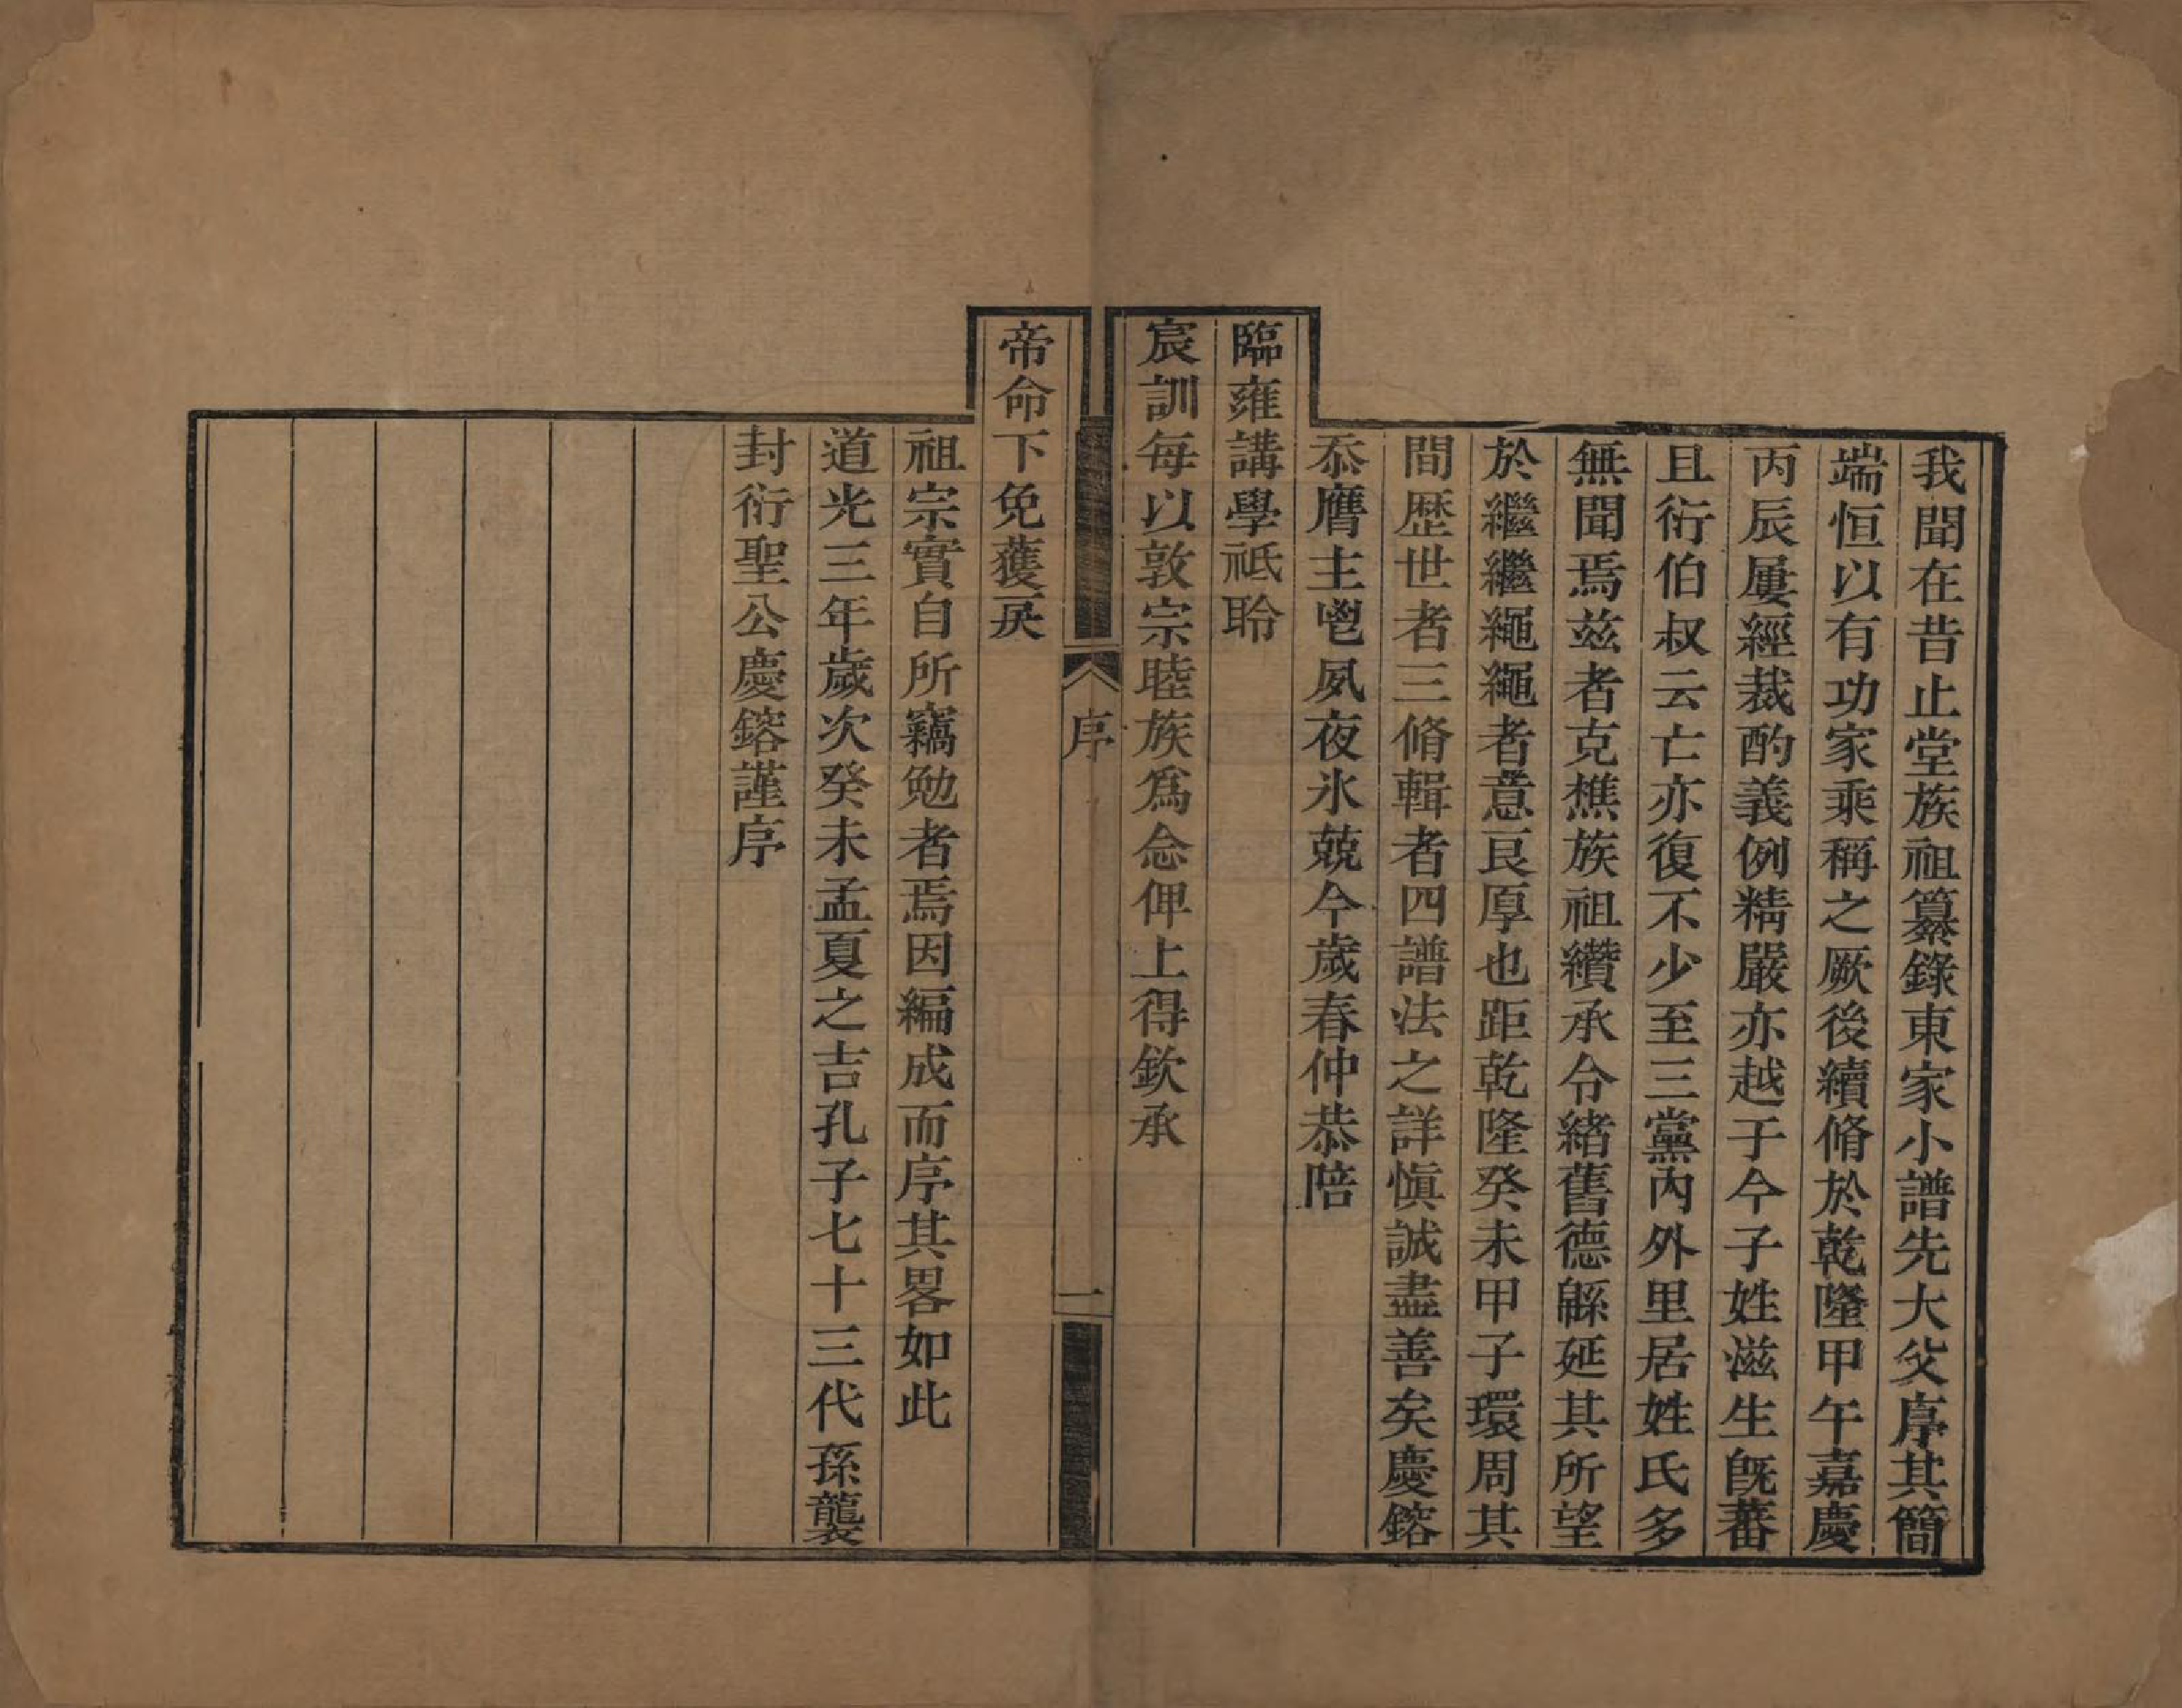 我聞在昔止堂族祖纂錄東家小譜先大父序其簡
端恒以有功家乘稱之厥後續脩於乾隆甲午嘉慶
丙辰屢經裁酌義例精嚴亦越于今子姓滋生旣蕃
且衍伯叔云亡亦復不少至三黨內外里居姓氏多
無聞焉茲者克樵族祖纘承令緒舊德緜延其所望
於繼繼繩繩者意良厚也距乾隆癸未甲子環周其
間歷世者三脩輯者四譜法之詳愼誠盡善矣慶鎔
忝膺主鬯夙夜氷兢今歲春仲恭陪
臨雍講學祗聆
宸訓每以敦宗睦族爲念俾上得欽承
序
一
帝命下免獲戾
祖宗實自所竊勉者焉因編成而序其畧如此
道光三年歲次癸未孟夏之吉孔子七十三代孫襲
封衍聖公慶鎔謹序